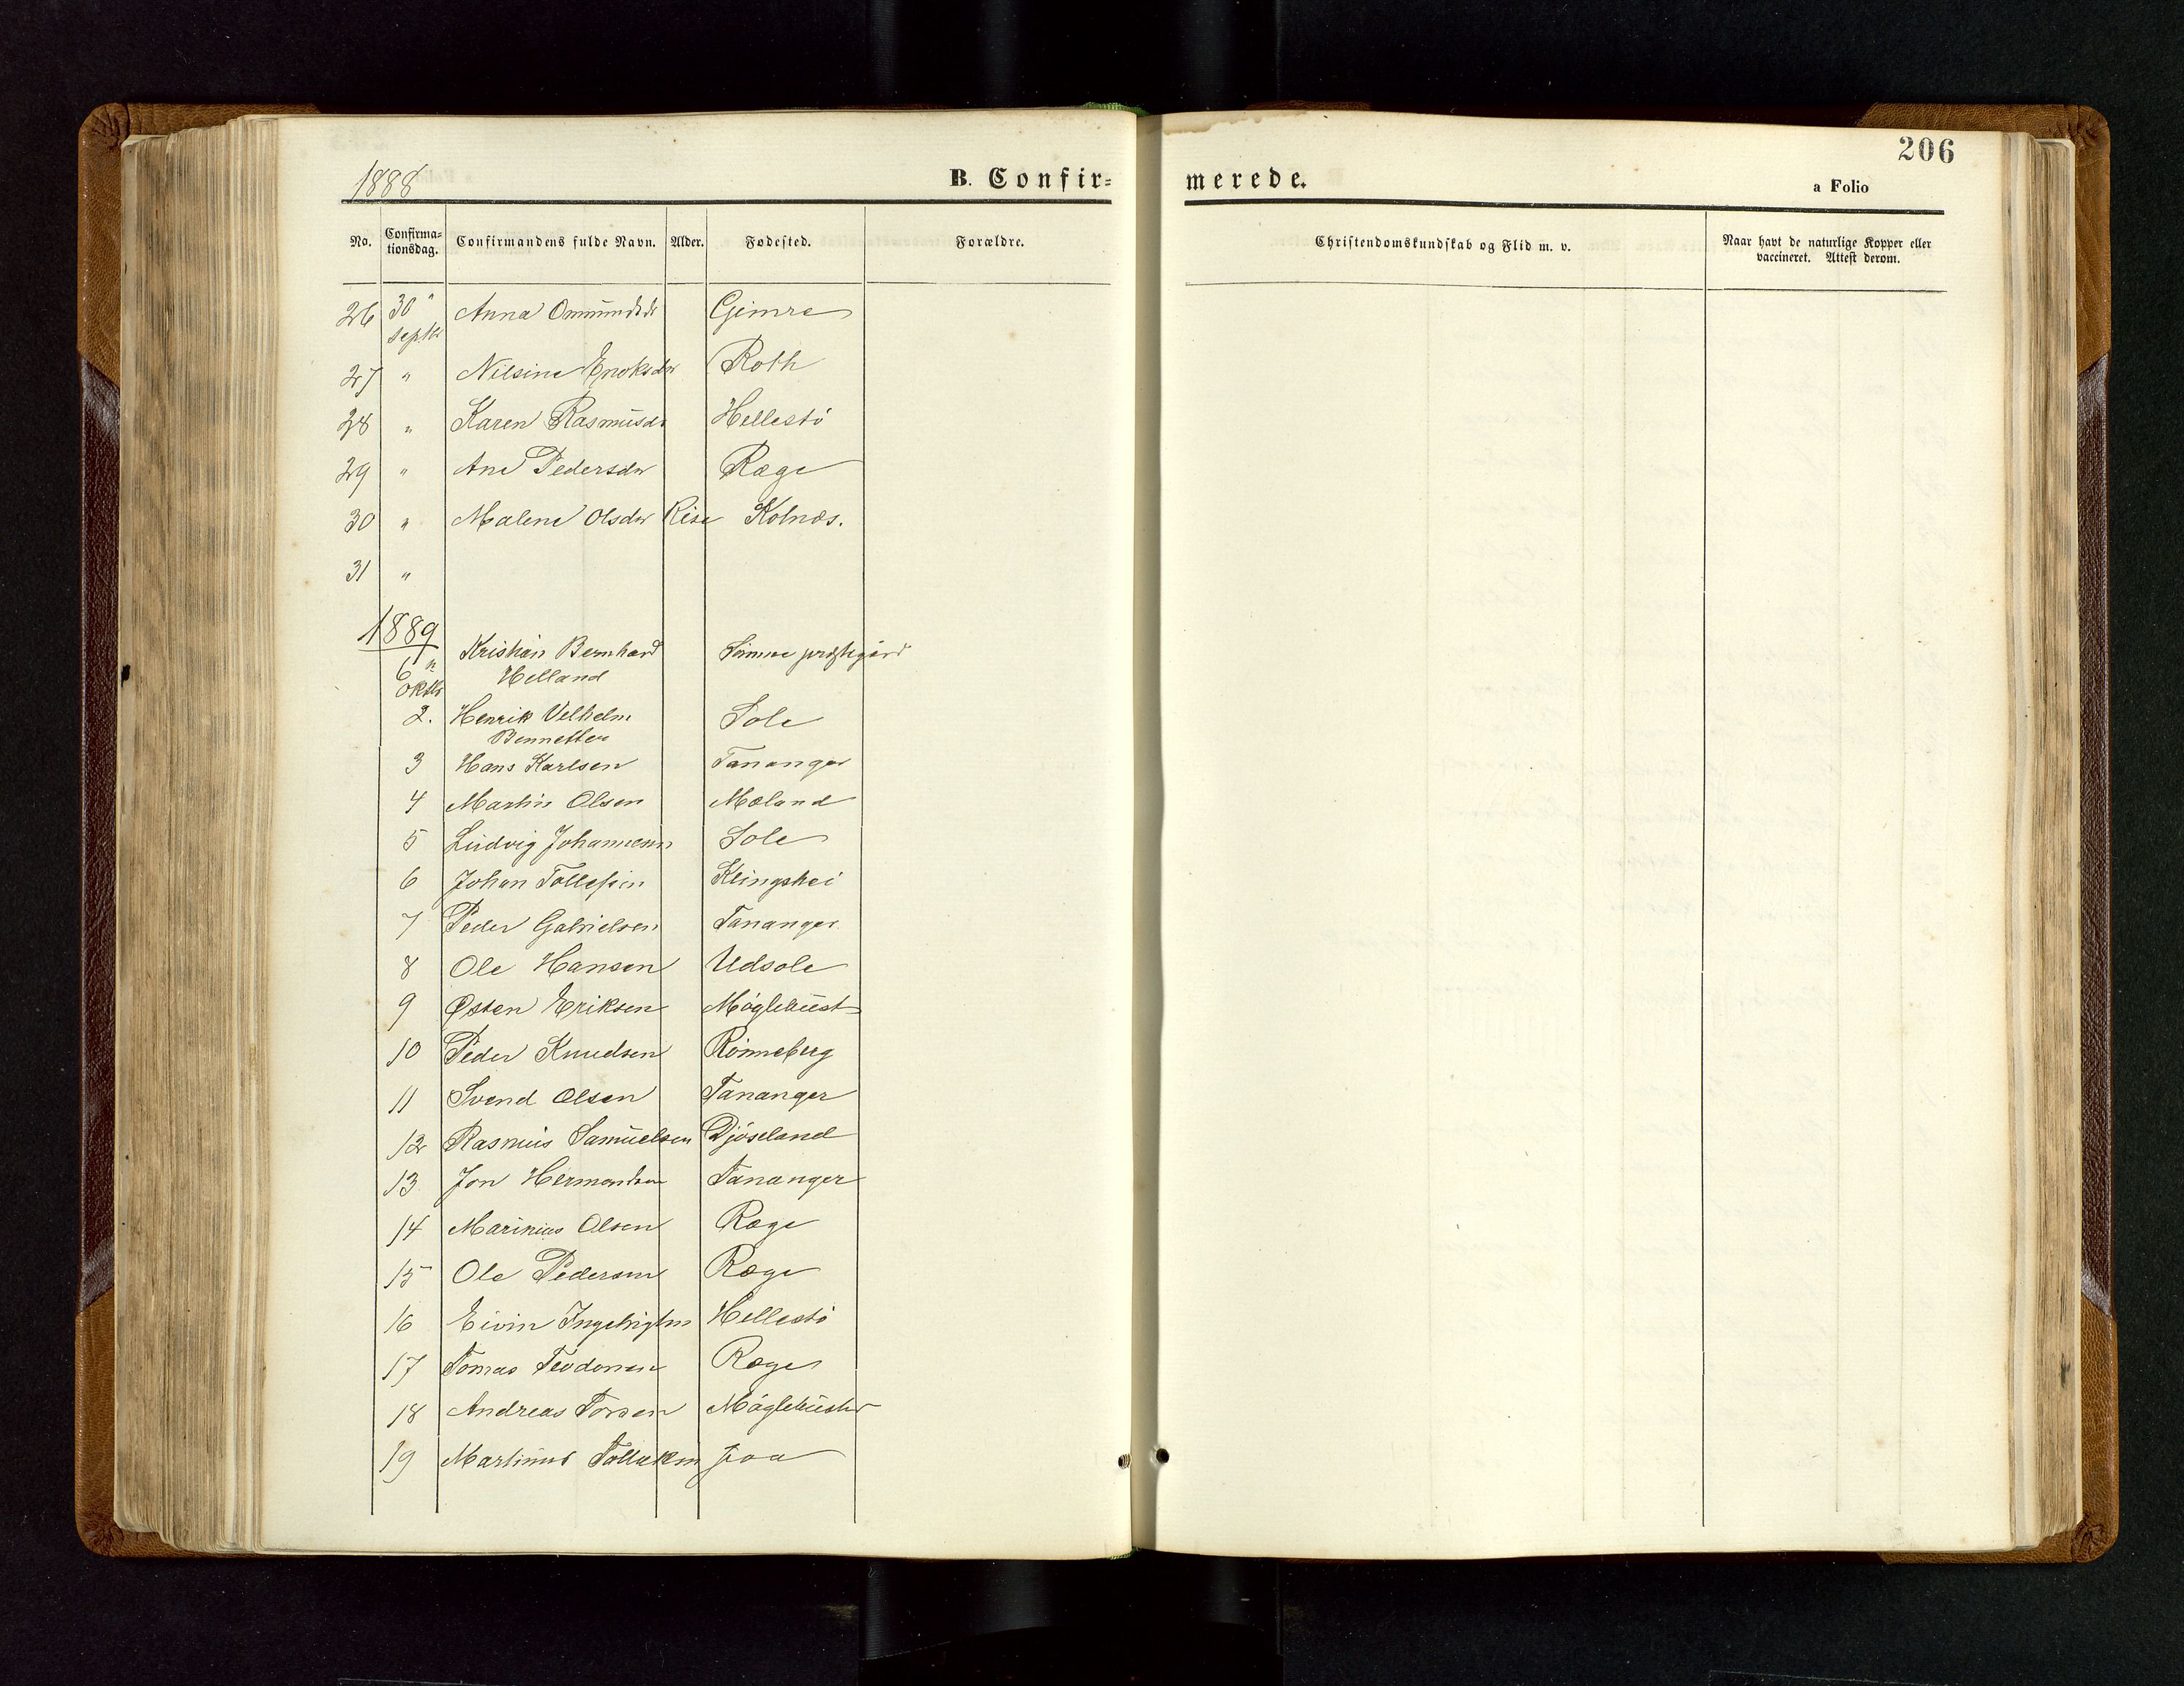 1888
B. Confir-
merede.
206
a Folio
No. Confirma- tionsdag. Confirmandens fulde Navn. Alder. Fødested. Forældre. Christendomskundskab og Flid m. v. Naar havt de naturlige Kopper eller vaccineret. Attest derom.
26 30 " Anna Omundsdr Gimre
septbr
27 " Nilsine Enoksdr Roth
28 " Karen Rasmusdr Hellestö
29 " Ane Pedersdr Ræge
30 " Malene Olsdr Risa Kolnæs.
31 "
1889
6 " Kristian Bernhard Sömme præstegård
oktbr Helland
2. Henrik Velhelm Sole
Bennetter
3 Hans Karlsen Tananger
4 Martin Olsen Mæland
5 Ludvig Johannesen Sole
6 Johan Tollefsen Klingshei
7 Peder Gabrielsen Tananger
8 Ole Hansen Udsole
9 Østen Eriksen Möglebust
10 Peder Knudsen Rönneberg
11 Svend Olsen Tananger
12 Rasmus Samuelsen Djöseland
13 Jon Hermansen Tananger
14 Marinius Olsen Ræge
15 Ole Pedersen Ræge
16 Eivin Ingebrigtsn Hellestö
17 Tomas Teodorsen Ræge
18 Andreas Torsen Möglebust
19 Martinus Tollaksn Joa